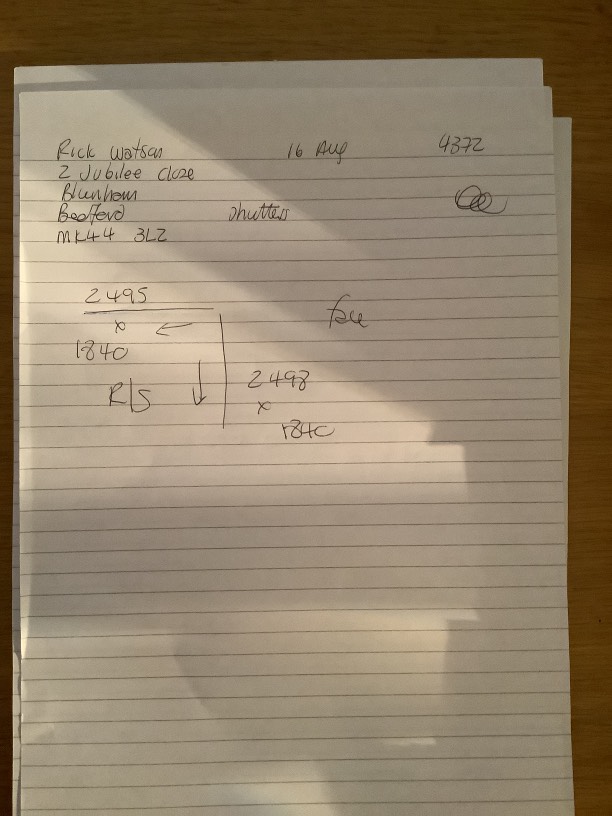 Rick Watson 16 Aug 4372
2 Jubilee Close
Blunham
Bedford shutters
MK44 3LZ
2495
x
1840
R/S
2498
x
1840